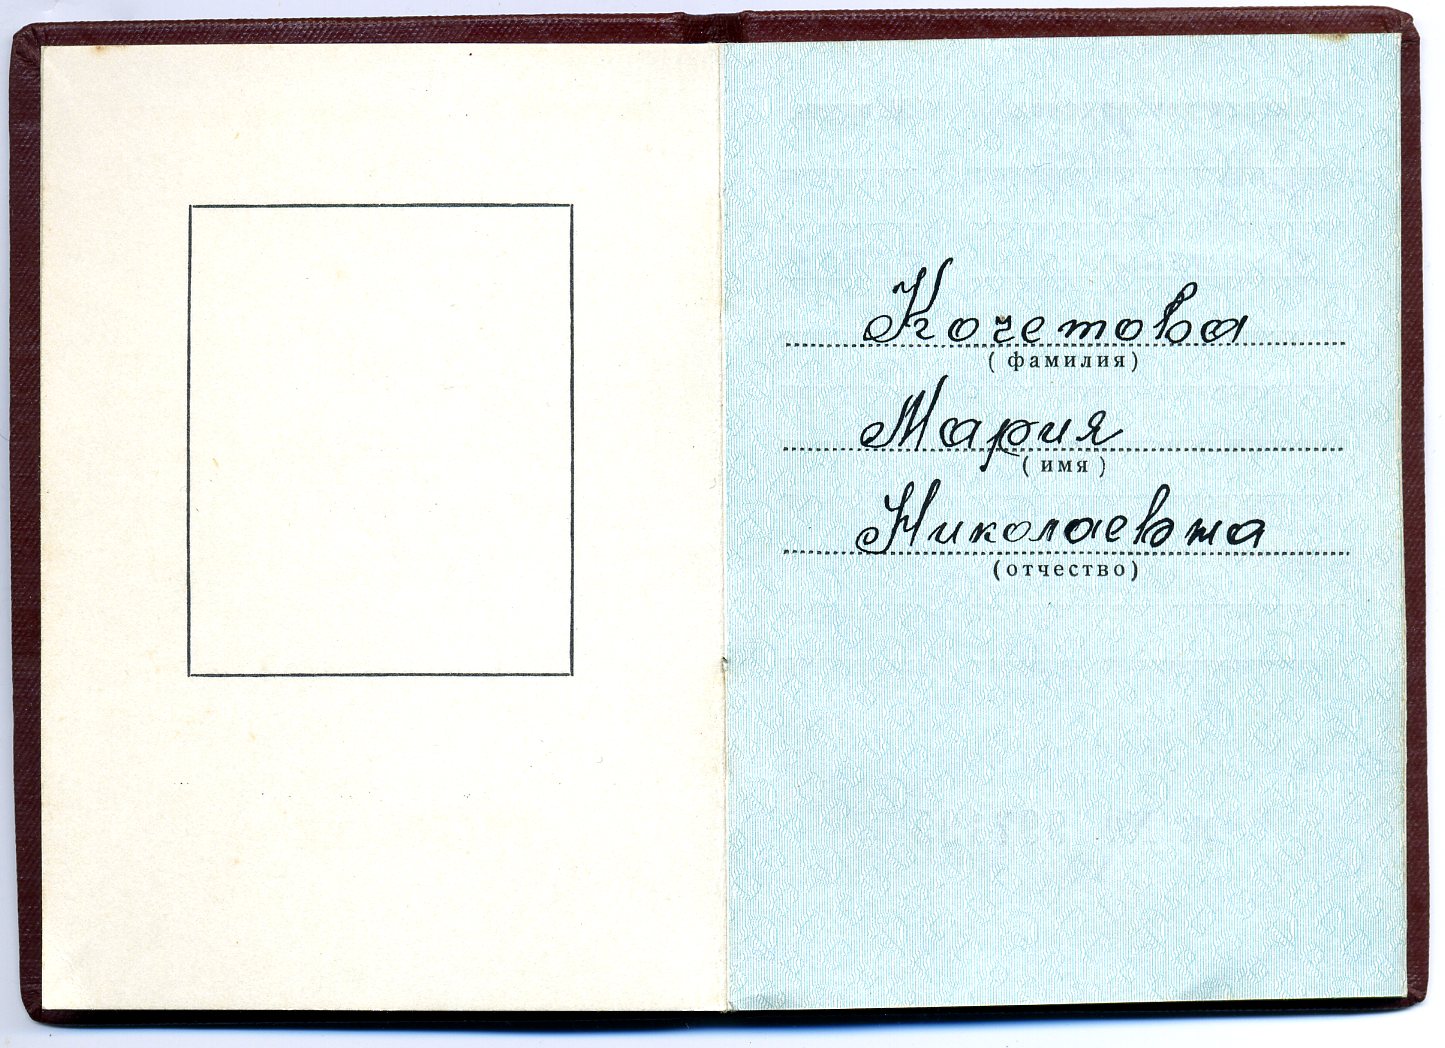 Кочетова
( фамилия)
Мария
( имя )
Николаевна
(отчество)